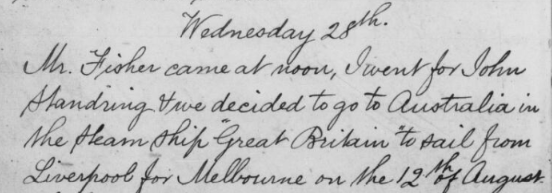 Wednesday 28th.
Mr. Fisher came at noon, I went for John
Standring & we decided to go to Australia in
the Steam Ship "Great Britain" to sail from
Liverpool for Melbourne on the 12th of August